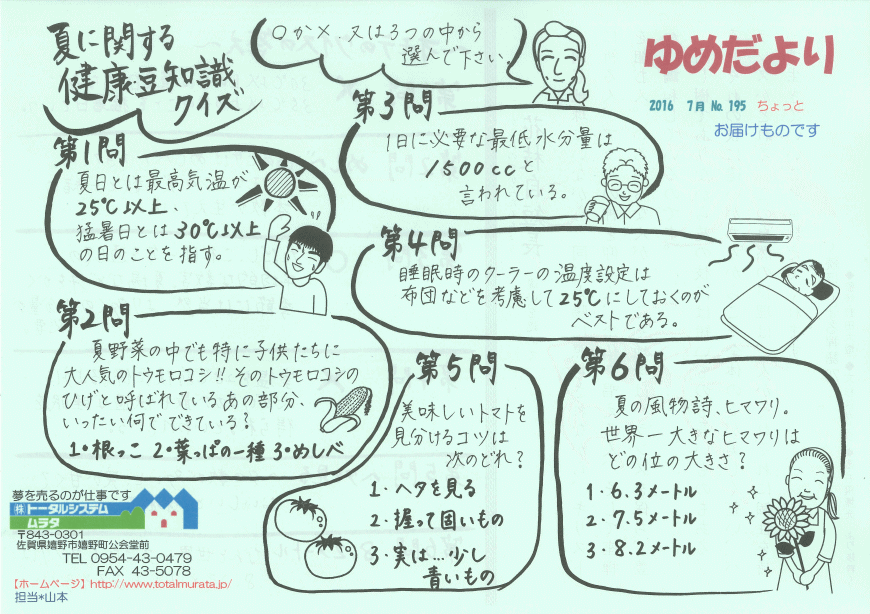 夏に関する
健康豆知識
クイズ
○か×、又は3つの中から
選んで下さい。
ゆめだより
2016 7月 No.195 ちょっと
お届けものです
第1問
夏日とは最高気温が
25℃以上、
猛暑日とは30℃以上
の日のことを指す。
第2問
夏野菜の中でも特に子供たちに
大人気のトウモロコシ!!そのトウモロコシの
ひげと呼ばれているあの部分、
いったい何でできている?
1・根っこ 2・葉っぱの一種 3・めしべ
第3問
1日に必要な最低水分量は
1500ccと
言われている。
第4問
睡眠時のクーラーの温度設定は
布団などを考慮して25℃にしておくのが
ベストである。
第5問
美味しいトマトを
見分けるコツは
次のどれ?
1・ヘタを見る
2・握って固いもの
3・実は…少し
青いもの
第6問
夏の風物詩、ヒマワリ。
世界一大きなヒマワリは
どの位の大きさ?
1・6.3メートル
2・7.5メートル
3・8.2メートル
夢を売るのが仕事です
㈱トータルシステム
ムラタ
〒843-0301
佐賀県嬉野市嬉野町公会堂前
TEL 0954-43-0479
FAX 43-5078
【ホームページ】http://www.totalmurata.jp/
担当*山本